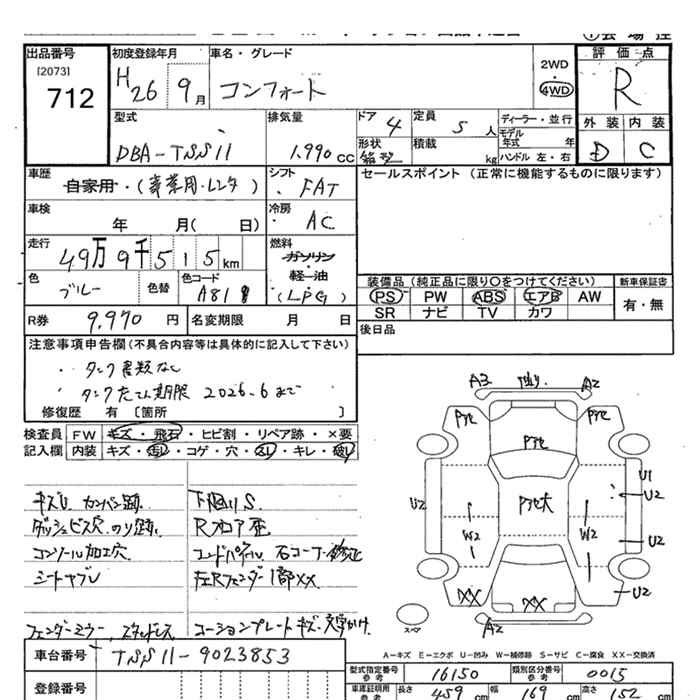 出品番号 初度登録年月 車名・グレード 2WD 評価点
[2073] 712 H26 9月 コンフォート 4WD R
型式 排気量 ドア 4 定員 5人 ディーラー・並行 外装 内装
モデル年式 年
DBA-TSS11 1.990cc 形状 積載 kg ハンドル 左・右 D C
車歴 自家用・(事業用・レンタ) シフト FAT セールスポイント (正常に機能するものに限ります)
車検 年 月(日) 冷房 AC
走行 49万9千515km 燃料 ガソリン・軽油(LPG)
色 ブルー 色替 色コード A818
装備品(純正品に限り〇をつけてください) 新車保証書
PS PW ABS エアB AW 有・無
SR ナビ TV カワ
R券 9.970円 名変期限 月 日 後日品
注意事項申告欄(不具合内容等は具体的に記入して下さい)
・タンク書類なし
・タンク 期限 2026.6まで
修復歴 有 [箇所 ]
検査員 FW キズ・飛石・ヒビ割・リペア跡・×要
記入欄 内装 キズ・汚レ・コゲ・穴・スレ・キレ・破レ
A3 A2
Pタヒ Pタヒ
Pタヒ
Pタヒ大
U2 U1 U2
W2 W2 U2
XX XX U2
A2
スペア
キズU カンバン跡 下廻りS
ダッシュビス穴 のり跡 Rフロア歪
コンソール加工穴
シートヤブレ 左Rフェンダー1部XX
フェンダーミラー、スタッドレス コーションプレートキズ・文字かけ
A-キズ E-エクボ U-凹み W-補修跡 S-サビ C-腐食 XX-交換済
車台番号 TSS11-9023853
型式指定番号 参考 16150 類別区分番号 参考 0015
登録番号 車庫証明用 参考 長さ 459cm 幅 169cm 高さ 152cm